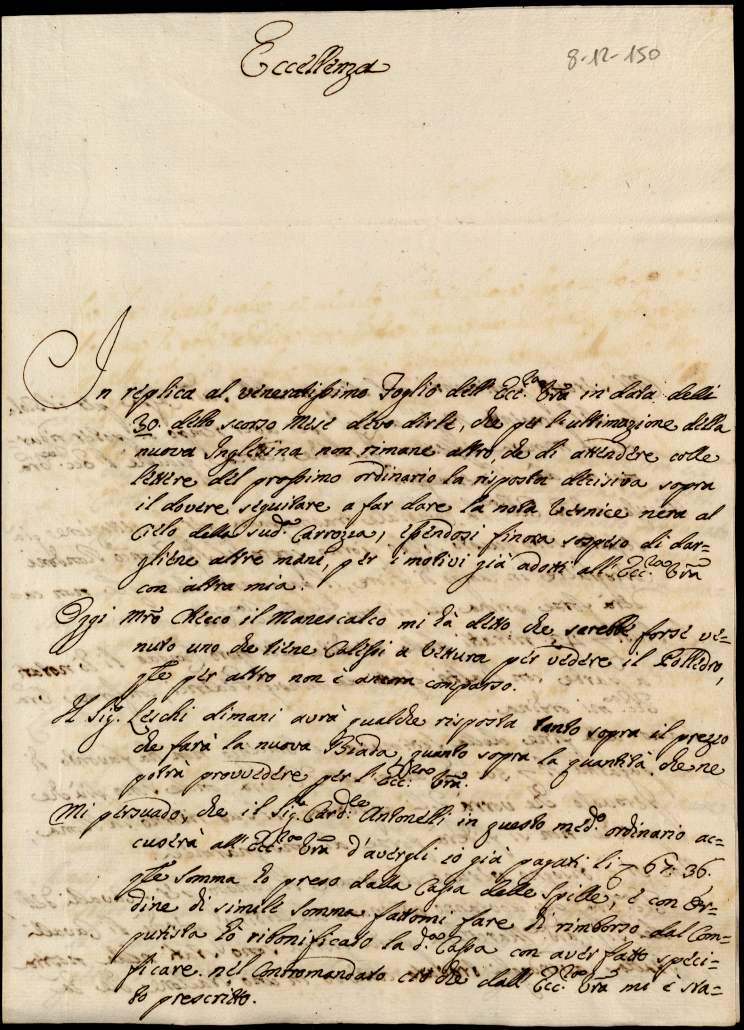 Eccellenza
8-12-150
In replica al veneratissimo Foglio dell' Ecc.za Vrã in data delli
30. dello scorso Mese devo dirle, che per l'ultimazione della
nuova Inglesina non rimane altro, che di attendere colle
lettere del prossimo ordinario la risposta decisiva sopra
il dovere seguitare a far dare la nota Vernice nera al
Cielo della sud.a Carrozza, essendosi finora sospeso di dar=
gliene altre mani, per i motivi già adotti all' Ecc.za Vrã
con altra mia.
Oggi Mrõ Checo il Manescalco mi hà detto che sarebbe forse ve=
nuto uno che tiene Calessi a Vettura per vedere il Polledro,
qle per altro non è ancora comparso.
Il Sig.r Leschi dimani avrà qualche risposta tanto sopra il prezzo
che farà la nuova Biada, quanto sopra la quantità che ne
potrà provvedere per l' Ecc.za Vrã.
Mi persuado, che il Sig.r Card.le Antonelli in questo med.o ordinario ac=
cuserà all' Ecc.za Vrã d'avergli io già pagati li 67: 36.
qle somma hò preso dalla Cassa delle Spille, e con Or=
dine di simile somma fattomi fare di rimborso dal Com=
putista hò ribonificato la d.a Cassa con aver fatto speci=
ficare nel Contromandato ciò che dall' Ecc.za Vrã mi è sta=
to prescritto.